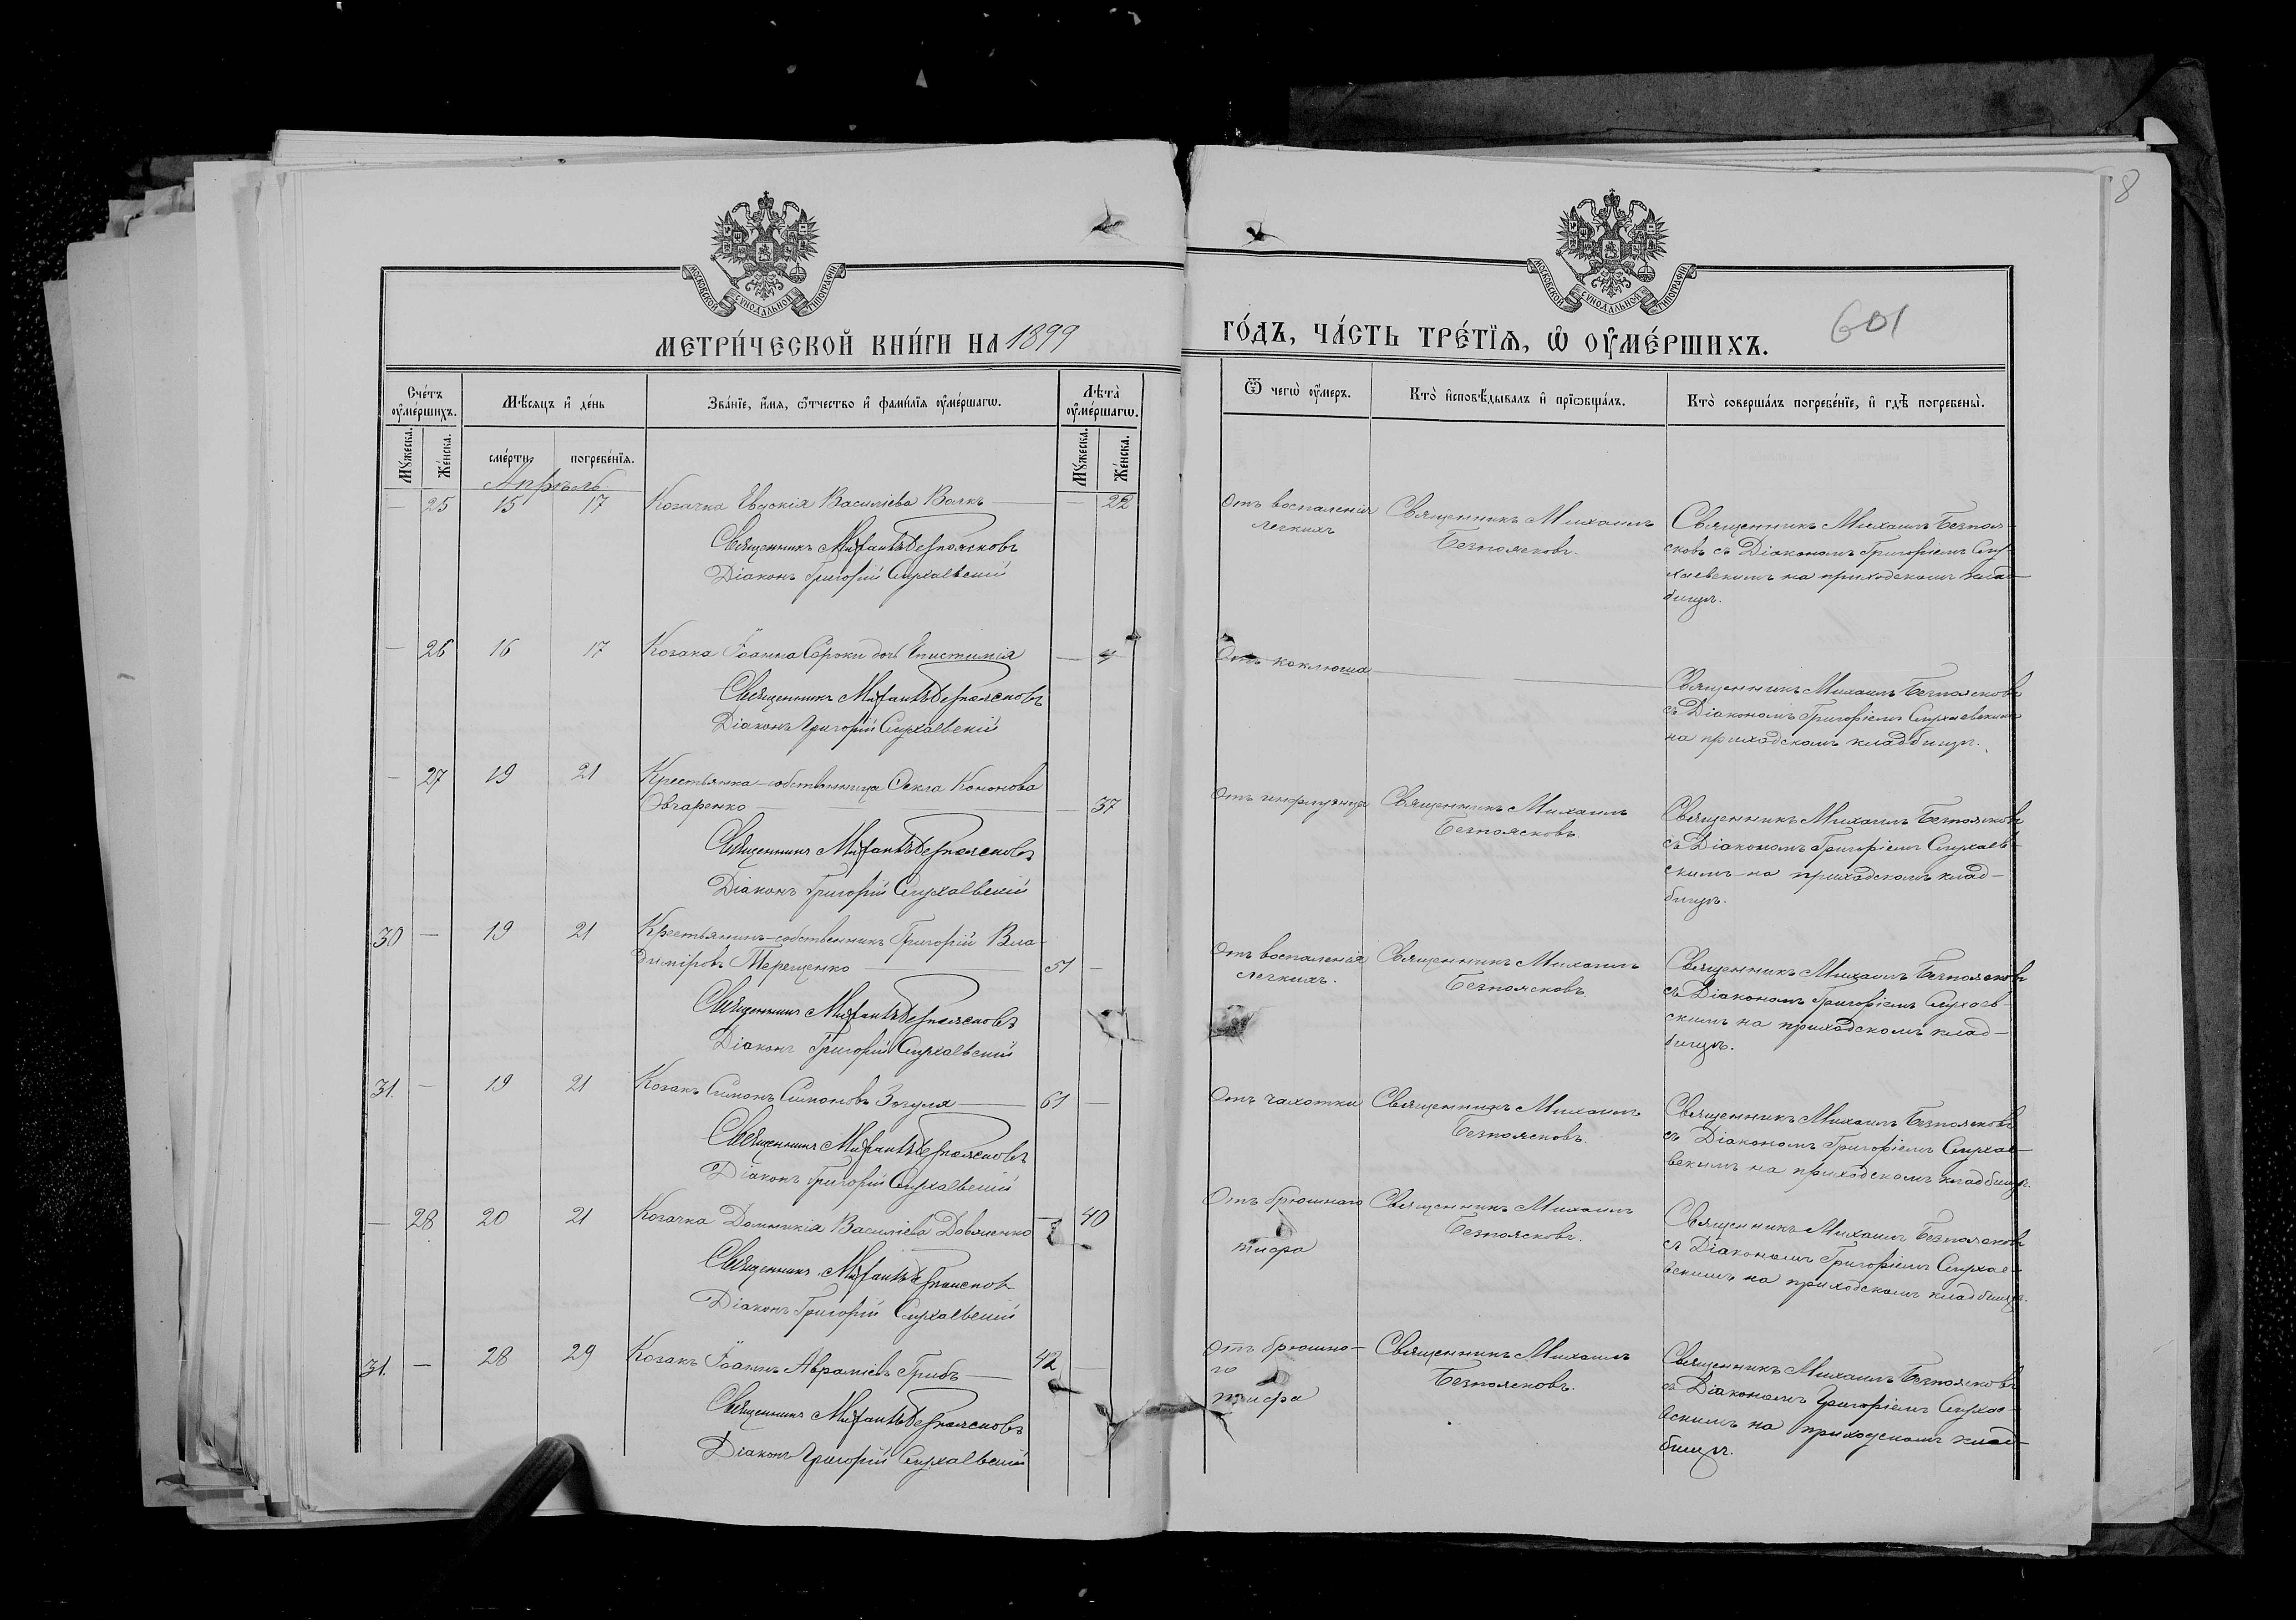 8
МОСКОВСКОЙ СѴНОДАЛЬНОЙ ТИПОГРАФІИ
МОСКОВСКОЙ СѴНОДАЛЬНОЙ ТИПОГРАФІИ
МЕТРИ́ЧЕСКОЙ КНИ́ГИ НА 1899
ГО́ДЪ, ЧА́СТЬ ТРЕ́ТЇѦ, Ѡ҆ ОУ҆МЕ́РШИХЪ.
601
Сче́тъ оу҆ме́ршихъ.
Мꙋ́жеска.
Же́нска.
Мѣ́сѧцъ и҆ де́нь
сме́рти
погребе́нїѧ.
Зва́нїе, и҆́мѧ, ѻ҆́тчество и҆ фами́лїѧ оу҆ме́ршагѡ.
Лѣта̀ оу҆ме́ршагѡ.
Мꙋ́жеска.
Же́нска.
Ѿ чегѡ̀ оу҆́меръ.
Кто̀ и҆сповѣ́дывалъ и҆ прїѡбща́лъ.
Кто̀ соверша́лъ погребе́нїе, и҆ гдѣ̀ погребены̀.
Апрѣль
— 25 15 17 Козачка Евдокія Василіева Вовкъ — 22
Священникъ Михаилъ Безпоясковъ
Діаконъ Григорій Слухаевскій
Отъ воспаленія
легкихъ
Священникъ Михаилъ
Безпоясковъ.
Священникъ Михаилъ Безпоя-
сковъ съ Діакономъ Григоріемъ Слу-
хаевскимъ на приходскомъ клад-
бищѣ.
— 26 16 17 Козака Іоанна Сороки дочь Епистимія — 4
Священникъ Михаилъ Безпоясковъ
Діаконъ Григорій Слухаевскій
Отъ коклюша —
Священникъ Михаилъ Безпоясковъ
съ Діакономъ Григоріемъ Слухаевскимъ
на приходскомъ кладбищѣ.
— 27 19 21 Крестьянка-собственница Ѳекла Кононова
Овчаренко — 37
Священникъ Михаилъ Безпоясковъ
Діаконъ Григорій Слухаевскій
Отъ инфлуэнци
Священникъ Михаилъ
Безпоясковъ.
Священникъ Михаилъ Безпоясковъ
съ Діакономъ Григоріемъ Слухаев-
скимъ на приходскомъ клад-
бищѣ.
30 — 19 21 Крестьянинъ-собственникъ Григорій Вла-
диміровъ Терещенко — 51 —
Священникъ Михаилъ Безпоясковъ
Діаконъ Григорій Слухаевскій
Отъ воспаленія
легкихъ.
Священникъ Михаилъ
Безпоясковъ.
Священникъ Михаилъ Безпоясковъ
съ Діакономъ Григоріемъ Слухаев-
скимъ на приходскомъ клад-
бищѣ.
31. — 19 21 Козакъ Симонъ Симоновъ Зозуля — 61 —
Священникъ Михаилъ Безпоясковъ
Діаконъ Григорій Слухаевскій
Отъ чахотки
Священникъ Михаилъ
Безпоясковъ.
Священникъ Михаилъ Безпоясковъ
съ Діакономъ Григоріемъ Слухае-
вскимъ на приходскомъ кладбищѣ.
— 28 20 21 Козачка Домникія Василіева Довженко — 40
Священникъ Михаилъ Безпоясковъ
Діаконъ Григорій Слухаевскій
Отъ брюшнаго
тифа
Священникъ Михаилъ
Безпоясковъ.
Священникъ Михаилъ Безпоясковъ
съ Діакономъ Григоріемъ Слухае-
вскимъ на приходскомъ кладбищѣ.
31. — 28 29 Козакъ Іоаннъ Авраміевъ Грибъ — 42 —
Священникъ Михаилъ Безпоясковъ
Діаконъ Григорій Слухаевскій
Отъ брюшна-
го
тифа
Священникъ Михаилъ
Безпоясковъ.
Священникъ Михаилъ Безпоясковъ
съ Діакономъ Григоріемъ Слухае-
вскимъ на приходскомъ клад-
бищѣ.